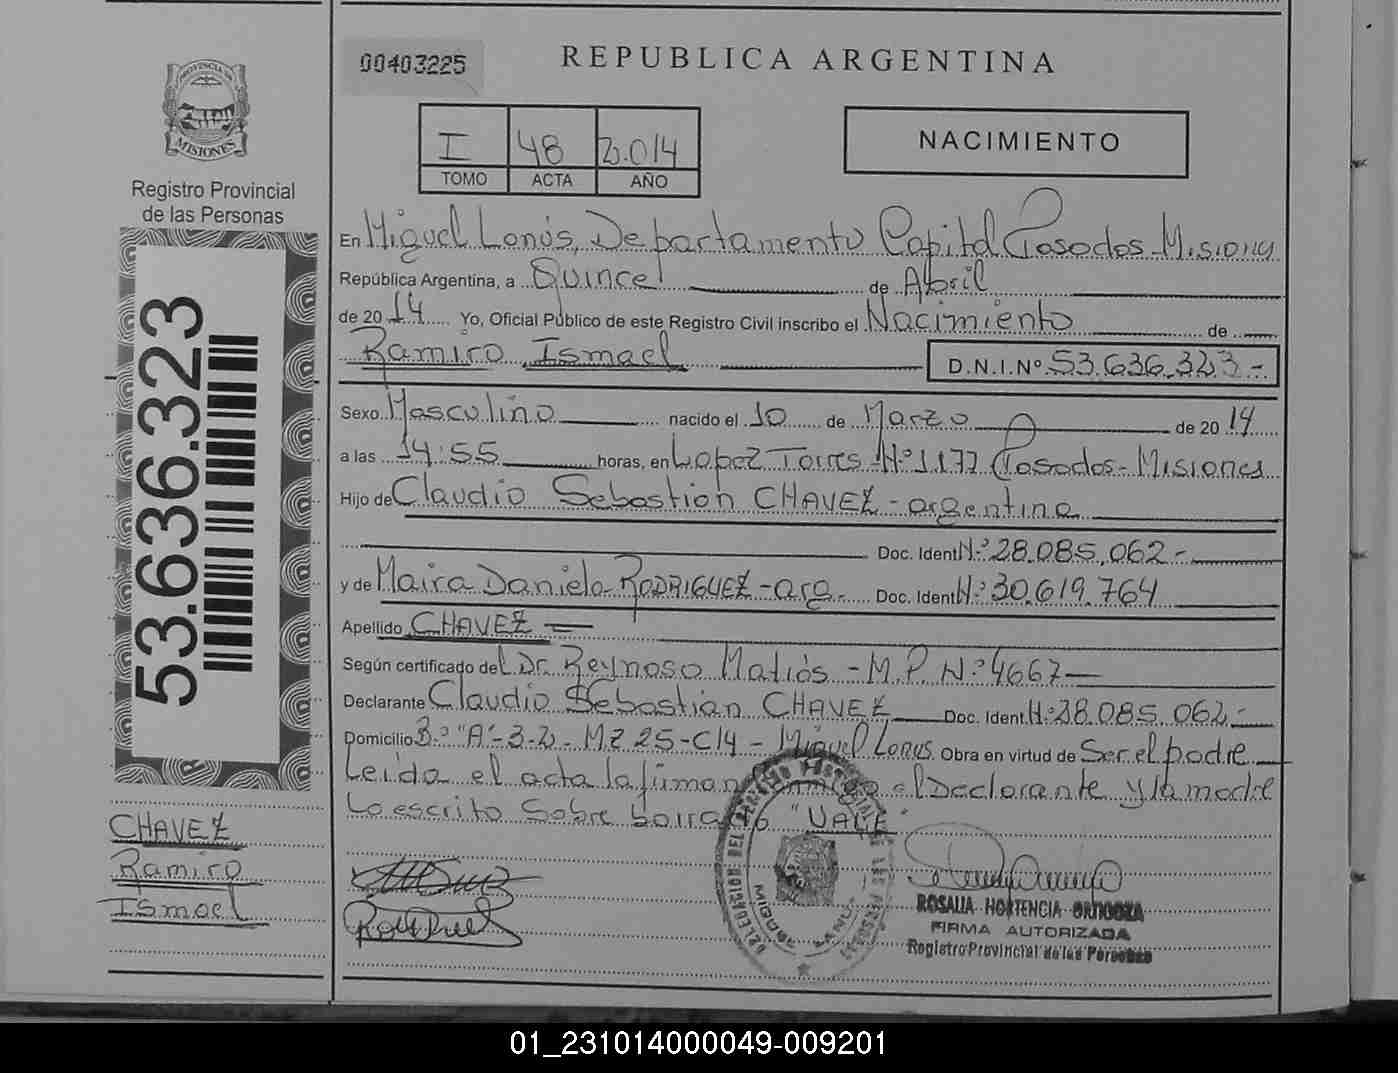 00403225
REPUBLICA ARGENTINA
PROVINCIA DE
MISIONES
Registro Provincial
de las Personas
I 48 2.014
TOMO ACTA AÑO
NACIMIENTO
En Miguel Lanús, Departamento Capital Posadas-Misiones
República Argentina, a Quince de Abril
de 2014 Yo, Oficial Público de este Registro Civil inscribo el Nacimiento de
Ramiro Ismael D.N.I.Nº 53.636.323-
Sexo Masculino nacido el 10 de Marzo de 2014
a las 14:55 horas, en Lopez Torres Nº 1177 Posadas-Misiones
Hijo de Claudio Sebastián CHAVEZ-argentina
Doc. Ident Nº 28.085.062-
y de Maira Daniela RODRIGUEZ-arg. Doc. Ident Nº 30.619.764
Apellido CHAVEZ
Según certificado del Dr. Reynoso Matiás-M.P. Nº 4667
Declarante Claudio Sebastián CHAVEZ Doc. Ident. Nº 28.085.062-
Domicilio Bº "A"-3-2-MZ 25-C14-Miguel Lanus Obra en virtud de Ser el padre
Leída el acta la firman conmigo el Declarante y la madre
Lo escrito Sobre borrado "VALE"
53.636.323
CHAVEZ
Ramiro
Ismael
ROSALIA HORTENCIA ORTIGOZA
FIRMA AUTORIZADA
Registro Provincial de las Personas
01_231014000049-009201